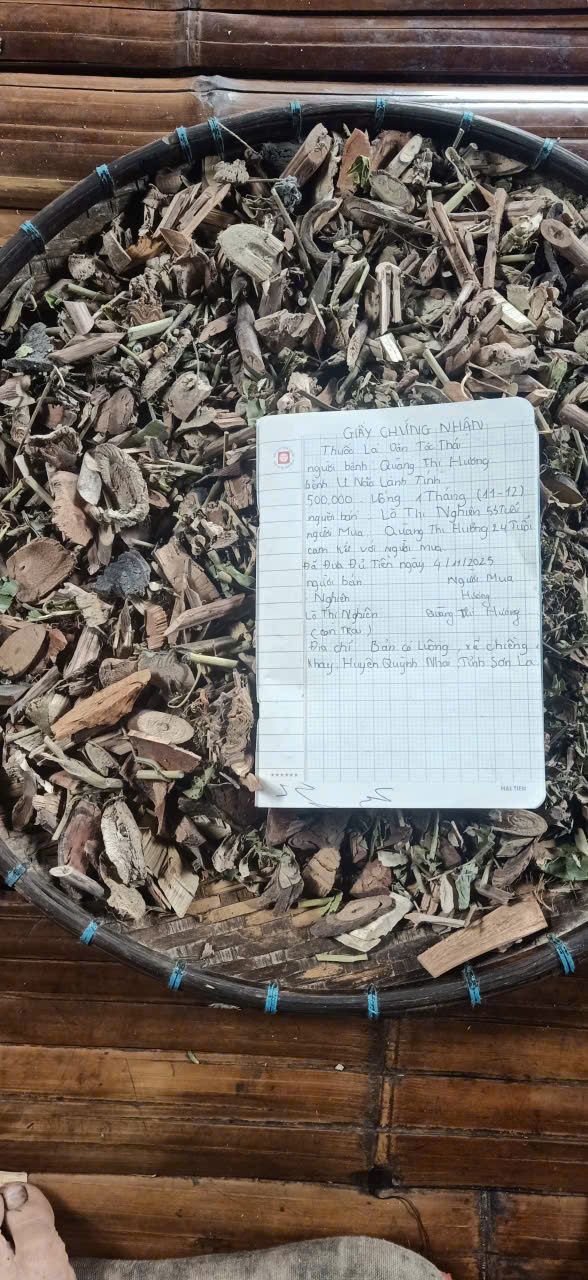 GIẤY CHỨNG NHẬN
Thuốc Lá Dân Tộc Thái
người bệnh Quàng Thị Hường
bệnh U Não Lành Tính
500,000 uống 1 Tháng (11-12)
người bán Lò Thị Nghiên 55 Tuổi
người Mua Quàng Thị Hường 24 Tuổi
cam kết với người mua
Đã Đưa Đủ Tiền ngày 4/11/2025
người bán Người Mua
Nghiên Hường
Lò Thị Nghiên Quàng Thị Hường
Địa chỉ Bản có , xã chiềng
khay, Huyện Quỳnh Nhai, Tỉnh Sơn La
HẢI TIẾN